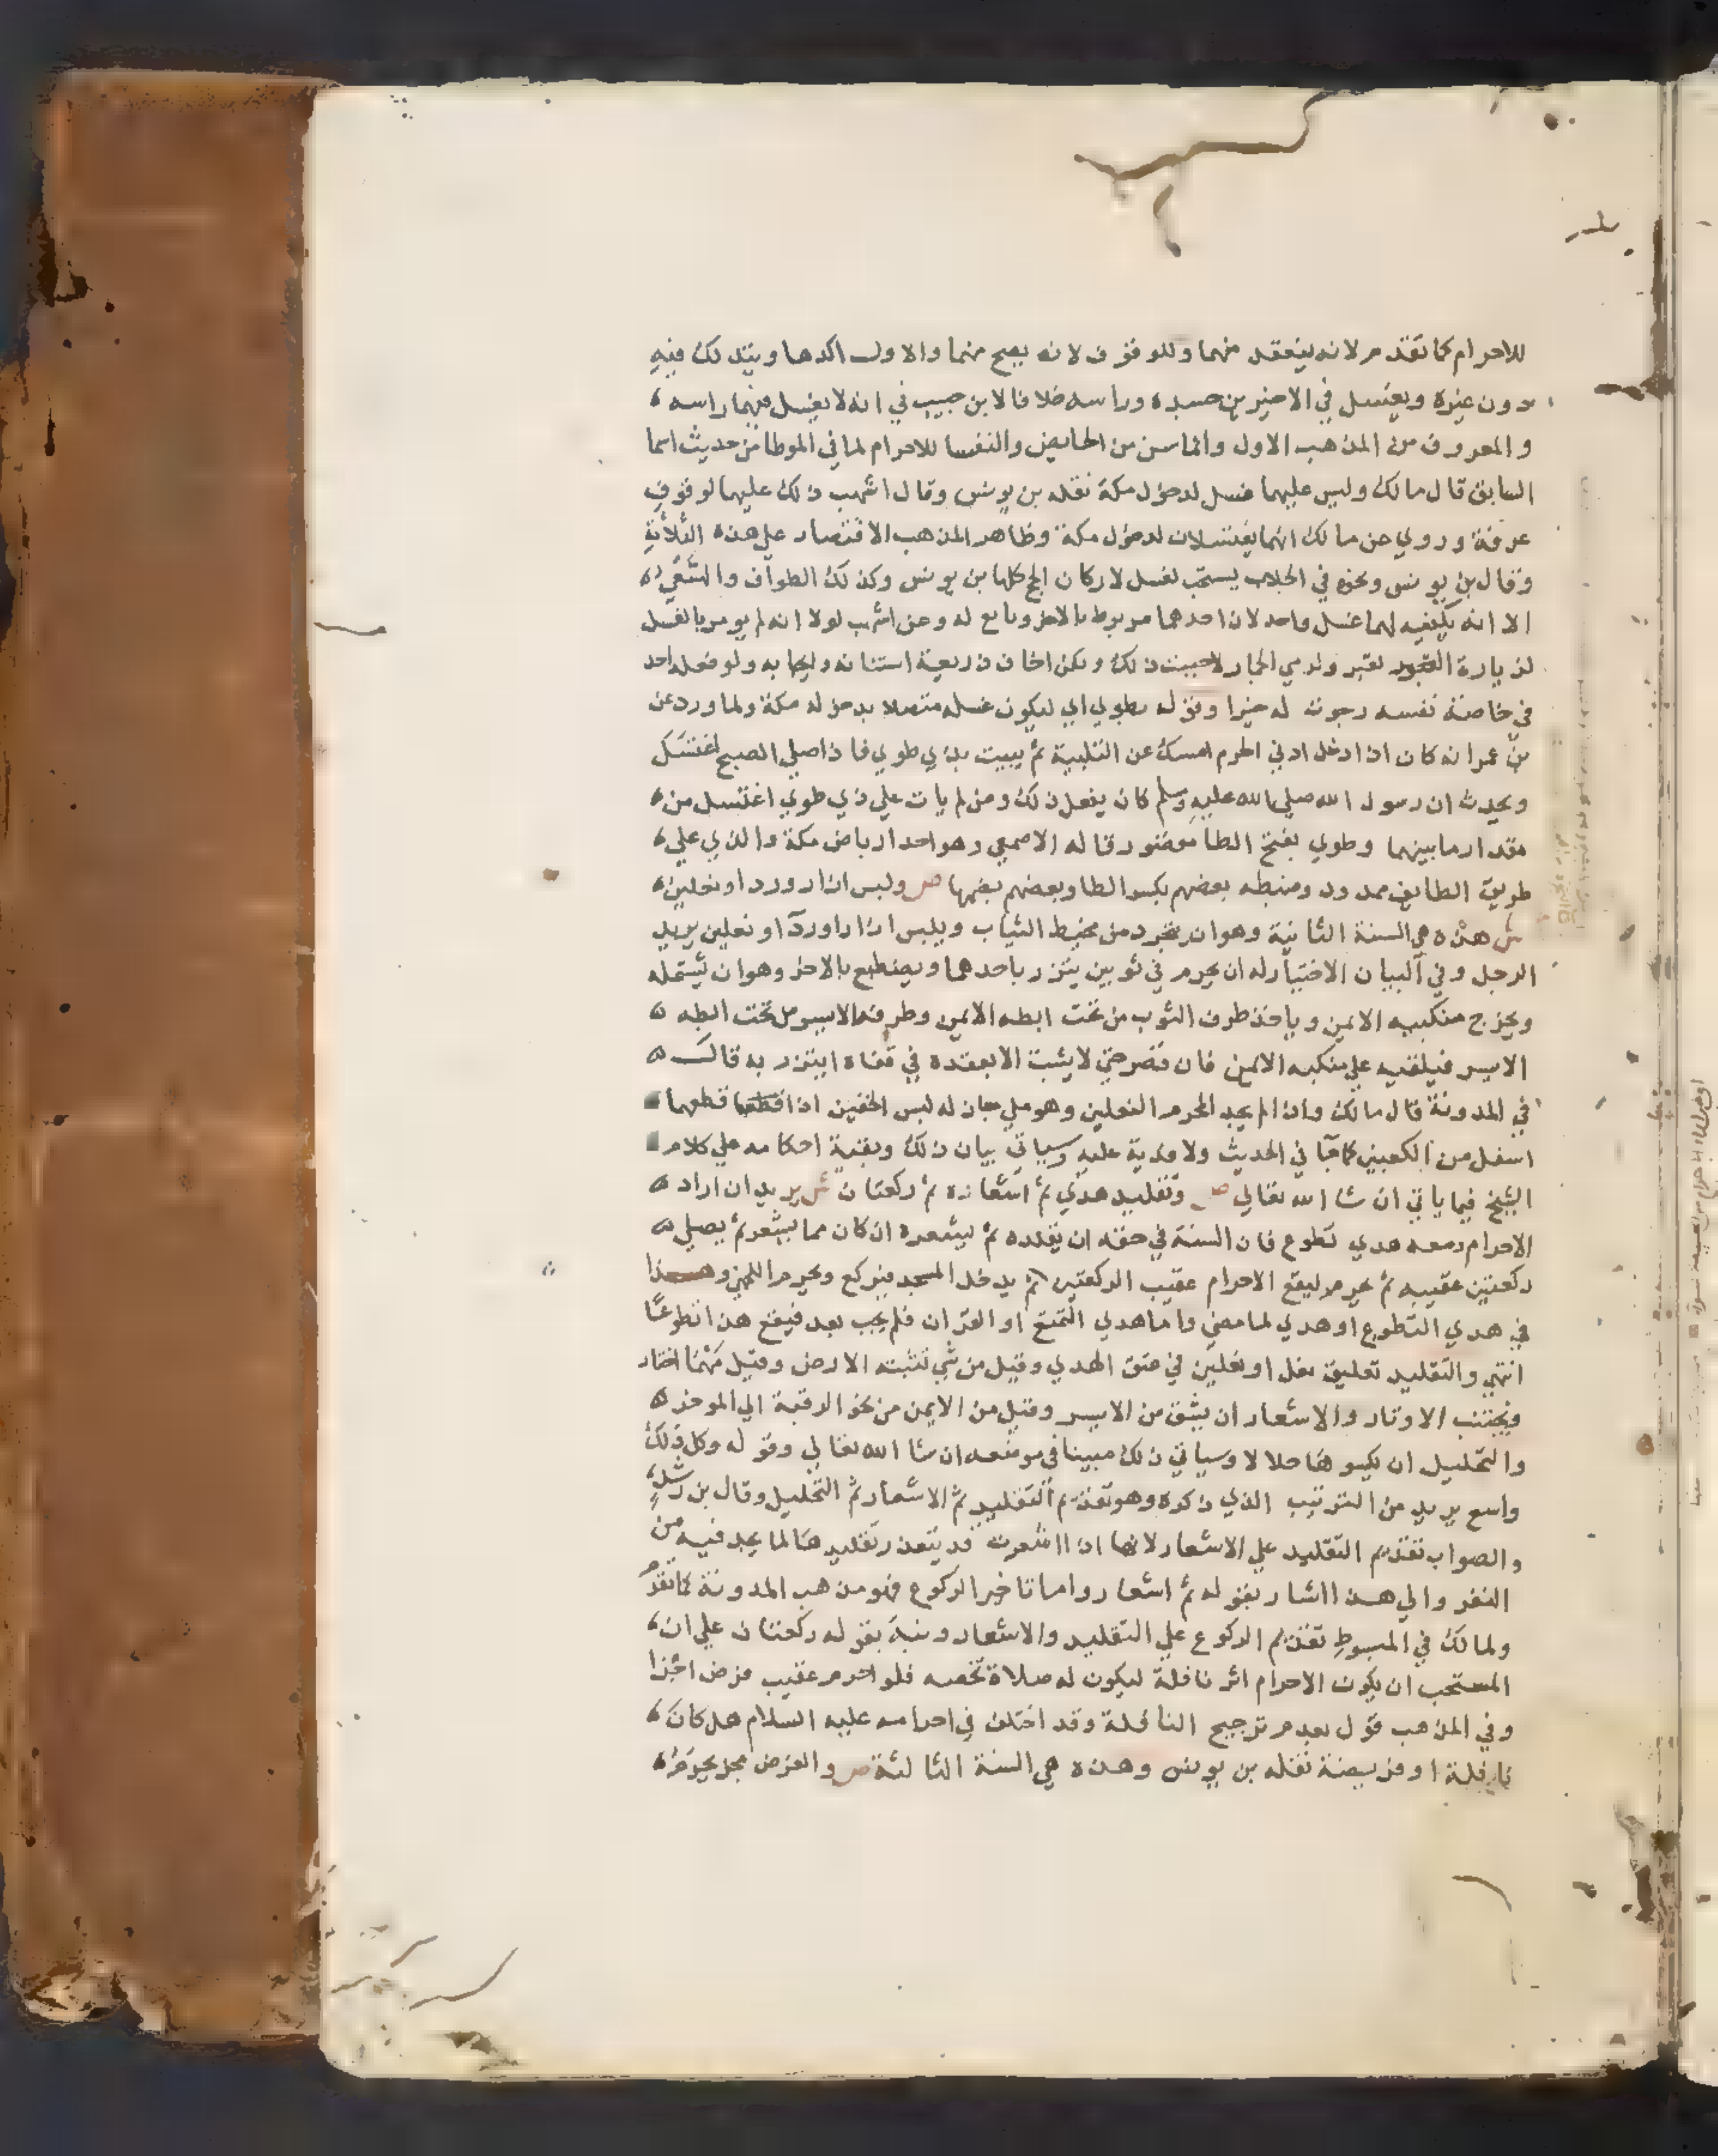 للاحرام كما تقدم لانه ينعقد منهما وللوقوف لانه يصح منهما والاول اكدها ويتدلك فيه
دون غيره ويغسل في الاخيرين جسده وراسه خلافا لابن حبيب في انه لا يغسل فيهما راسه
والمعروف من المذهب الاول والتماسن من الحايض والنفسا للاحرام لما في الموطا من حديث اسما
السابق قال مالك وليس عليهما غسل لدخول مكة نقله بن يونس وقال اشهب ذلك عليهما لوقوف
عرفة وروي عن مالك انهما يغتسلان لدخول مكة وظاهر المذهب الاقتصار علي هذه الثلاثة
وقال بن يونس ونحوه في الجلاب يستحب لغسل لاركان الحج كلها بن يونس وكذلك الطواف والسعي
الا انه يكفيه لهما غسل واحد لان احدهما مربوط بالاخر وتابع له وعن اشهب لولا انه لم يومر بالغسل
لزيارة القبور لقبر ولرمي الجمار لاحببت ذلك ولكن اخاف ذريعة استنانه وايجابه ولو فعله احد
في خاصة نفسه رجوت له خيرا وقوله بطوي اي ليكون غسله متصلا بدخوله مكة ولما ورد عن
بن عمر انه كان اذا دخل ادني الحرم امسك عن التلبية ثم يبيت بذي طوي فاذا صلي الصبح اغتسل
ويحدث ان رسول الله صلي الله عليه وسلم كان يفعل ذلك ومن لم يات علي ذي طوي اغتسل من
مقدار ما بينهما وطوي بفتح الطا مقصور قاله الاصمعي وهو احد ارباض مكة والذي علي
طريق الطايف ممدود وضبطه بعضهم بكسر الطا وبعضهم بضمها ص ولبس ازار وردا ونعلين
ش هذه هي السنة الثانية وهو ان يتجرد من مخيط الثياب ويلبس ازارا وردآ ونعلين يريد
الرجل وفي البيان الاختيار له ان يحرم في ثوبين يتزر باحدهما ويضطبع بالاخر وهو ان يشتمله
ويخرج منكبيه الايمن وياخذ طرف الثوب من تحت ابطه الايمن وطرفه الايسر من تحت ابطه
الايسر فيلقيه علي منكبه الايمن فان قصر حتي لا يثبت الا بعقده في قفاه ايتزر به قال
في المدونة قال مالك وان لم يجد المحرم النعلين وهو ملي جاز له لبس الخفين اذا قطعهما
اسفل من الكعبين كما جآ في الحديث ولا فدية عليه وسياتي بيان ذلك وبقية احكامه علي كلام
الشيخ فيما ياتي ان شا الله تعالي ص وتقليد هدي ثم اشعاره ثم ركعتان ش يريد ان اراد
الاحرام ومعه هدي تطوع فان السنة في حقه ان يقلده ثم يشعره ان كان مما يشعر ثم يصلي
ركعتين عقيبه ثم يحرم ليقع الاحرام عقيب الركعتين ثم يدخل المسجد فيركع ويحرم اللخمي وهذا
في هدي التطوع او هدي لما مضي واما هدي التمتع او القران فلم يجب بعد فيقع هذا تطوعًا
انتهي والتقليد تعليق نعل او نعلين في عنق الهدي وقيل من شي تنبته الارض وقيل مهما اختار
ويجتنب الاوتار والاشعار ان يشق من الايسر وقيل من الايمن من نحو الرقبة الي الموخر
والتجليل ان يكسوها جلالا وسياتي ذلك مبينا في موضعه ان شا الله تعالي وقوله وكل ذلك
واسع يريد من الترتيب الذي ذكره وهو تقديم التقليد ثم الاشعار ثم التجليل وقال بن رشد
والصواب تقديم التقليد علي الاشعار لانها اذا اشعرت قد يتعذر تقليدها لما يجد فيه من
النفر والي هذا اشار بقوله ثم اشعار واما تاخير الركوع فهو مذهب المدونة كما تقدم
ولمالك في المبسوط تقديم الركوع علي التقليد والاشعار ونبه بقوله ركعتان علي ان
المستحب ان يكون الاحرام اثر نافلة ليكون له صلاة تخصه فلو احرم عقيب فرض اجزا
وفي المذهب قول بعدم ترجيح النافلة وقد اختلف في احرامه عليه السلام هل كان
نافلة او فريضة نقله بن يونس وهذه هي السنة الثالثة ص والفرض مجز يحرم